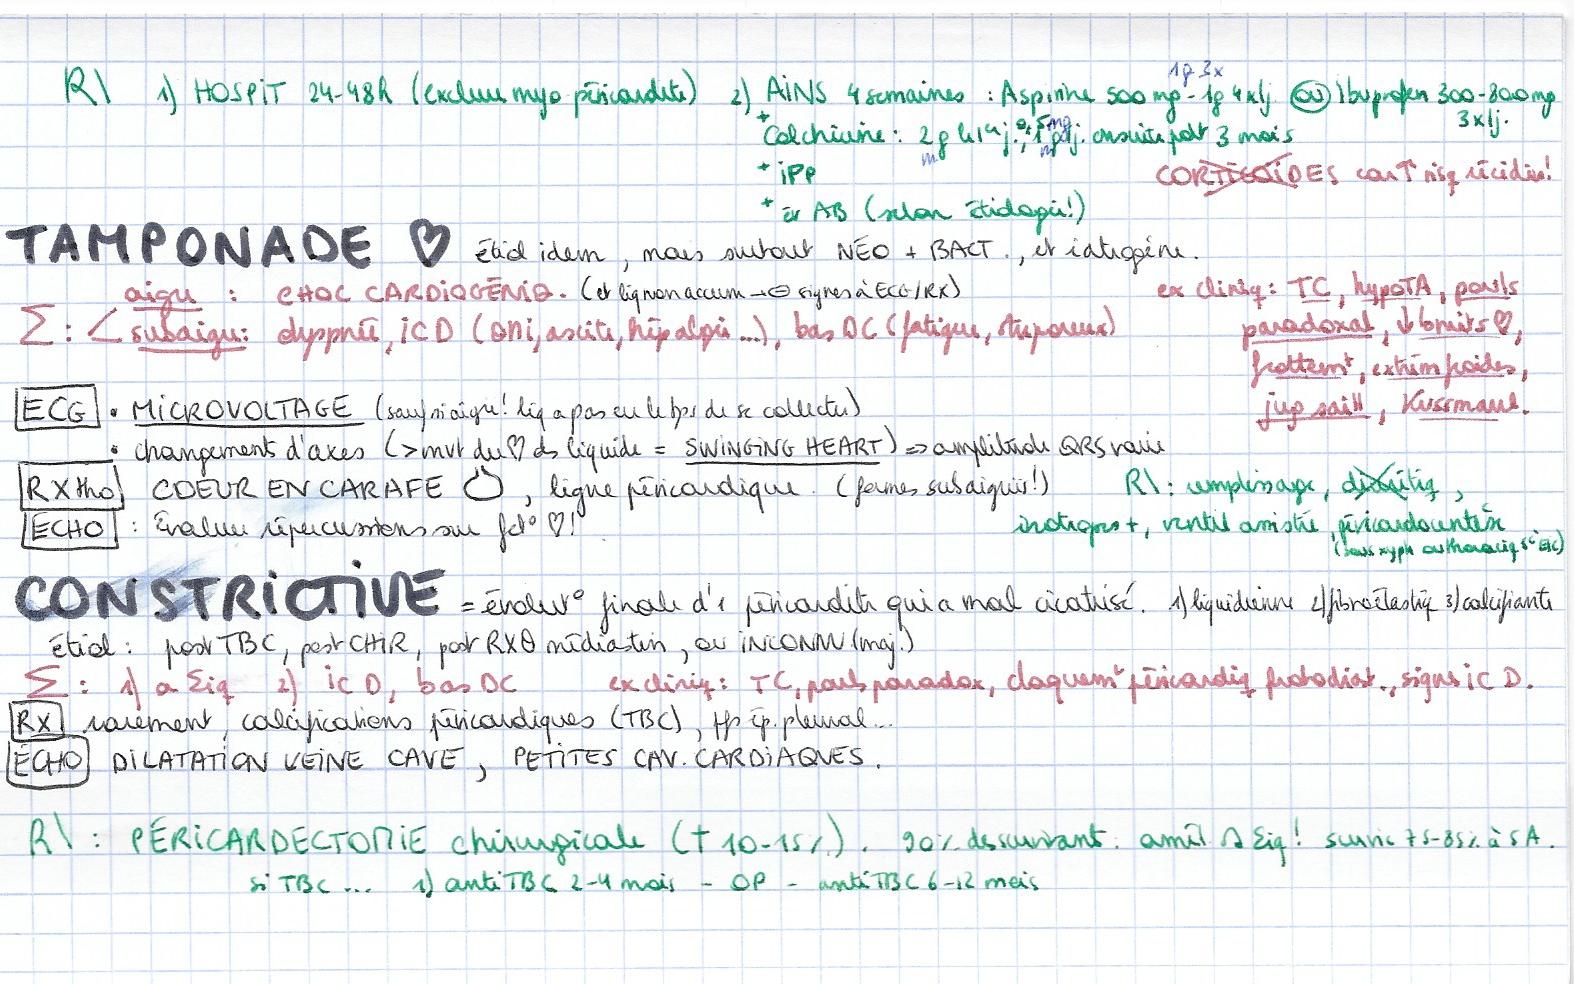 R\ 1) HOSPIT 24-48h (exclure myopéricardite) 2) AINS 4 semaines : Aspirine 500 mg - 1g 4x/j OU Ibuprofen 300-800 mg
1g 3x
3x/j.
+ Colchicine : 2 g le 1er j., ensuite pdt 3 mois
0,5 mg
+ IPP
CORTICOÏDES car ↑ risq récidive!
+ et AB (selon étiologie!)
TAMPONADE ♡ étiol idem, mais surtout NÉO + BACT., et iatrogène.
aigu : CHOC CARDIOGÉNIQ. (et liq non accum → ⊖ signes à ECG/RX)
Σ : < subaigu : dyspnée, IC D (OMI, ascite, hépalgie...), bas DC (fatigue, stuporeux)
ex cliniq : TC, hypoTA, pouls
paradoxal, ↓ bruits ♡,
frottemt, extrém froides,
jug saill, Kussmaul.
ECG • MICROVOLTAGE (sauf si aigu! liq a pas eu le tps de se collecter)
• changements d'axes (> mvt du ♡ ds liquide = SWINGING HEART) => amplitude QRS varie
RX tho COEUR EN CARAFE, ligne péricardique. (formes subaiguës!)
R\ : remplissage, diurétiq,
ÉCHO : Évaluer répercussions sur fct° ♡!
inotropes +, ventil assistée, péricardocentèse
(sous xyph ou thoraciq s/s ETC)
CONSTRICTIVE = évolut° finale d'1 péricardite qui a mal cicatrisé. 1) liquidienne 2) fibroélastiq 3) calcifiante
étiol : post TBC, post CHIR, post RXθ médiastin, ou INCONNU (maj.)
Σ : 1) a Σiq 2) IC D, bas DC ex cliniq : TC, pouls paradox, claquemt péricardiq protodiast., signes IC D.
RX rarement, calcifications péricardiques (TBC), ép. pleural...
ÉCHO DILATATION VEINE CAVE, PETITES CAV. CARDIAQUES.
R\ : PÉRICARDECTOMIE chirurgicale († 10-15%). 90% des survivant : amél Σiq! survie 75-85% à 5A.
si TBC ... 1) antiTBC 2-4 mois - OP - antiTBC 6-12 mois